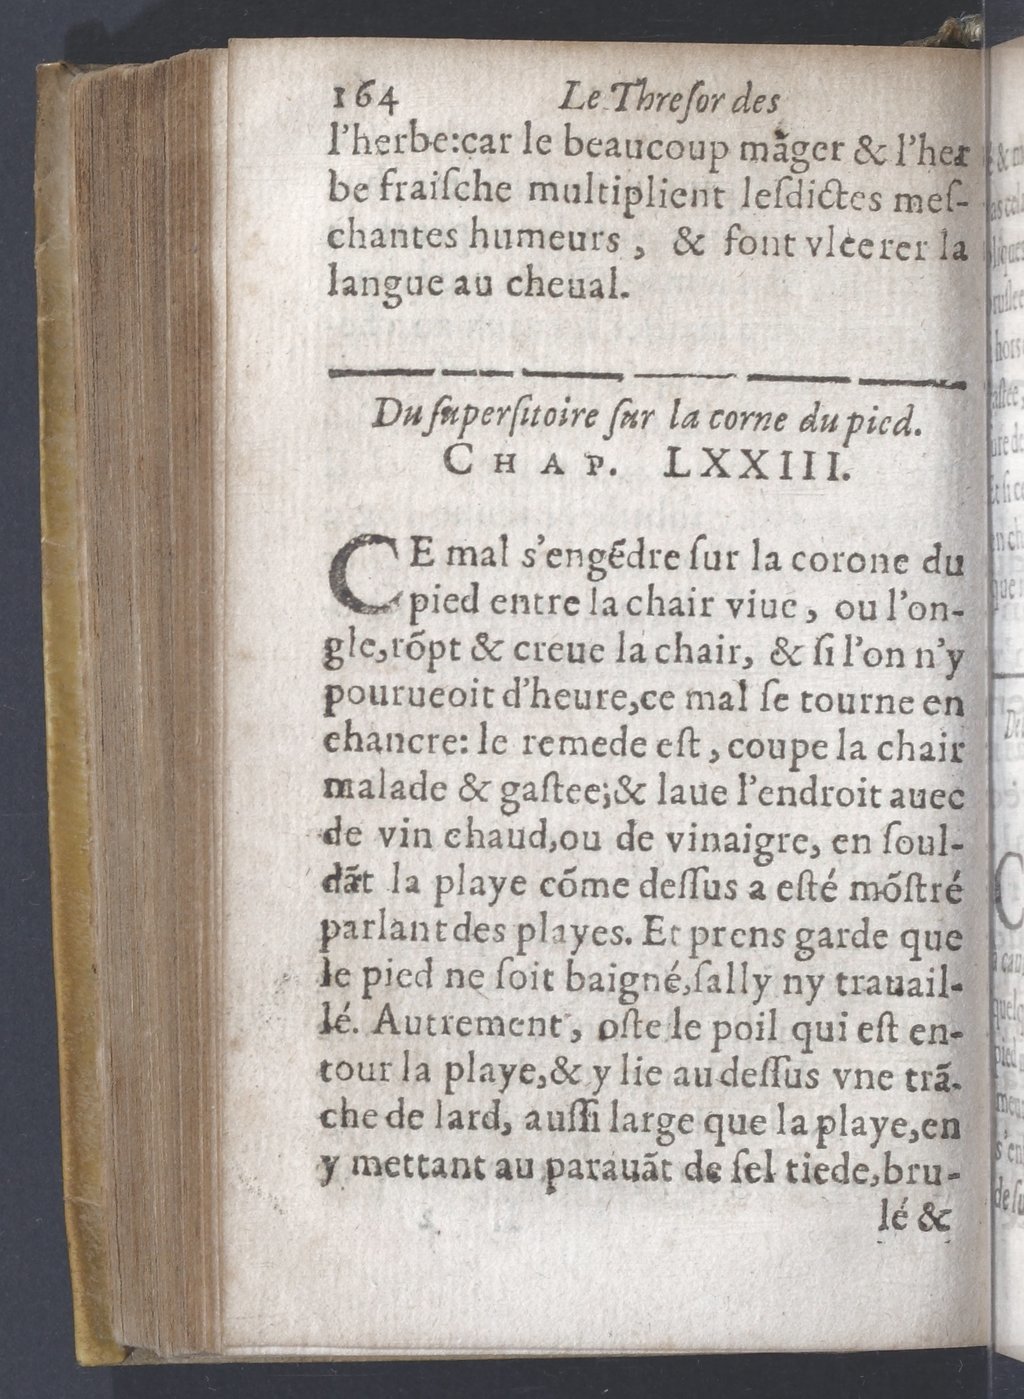 164 Le Threſor des
l'herbe:car le beaucoup mãger & l'her
be fraiſche multiplient leſdictes meſ-
chantes humeurs , & font vlcerer la
langue au cheual.
Du ſuperſitoire ſur la corne du pied.
CHAP. LXXIII.
CE mal s'engẽdre ſur la corone du
pied entre la chair viue , ou l'on-
gle,rõpt & creue la chair, & ſi l'on n'y
pourueoit d'heure,ce mal ſe tourne en
chancre: le remede eſt , coupe la chair
malade & gaſtee;& laue l'endroit auec
de vin chaud,ou de vinaigre, en ſoul-
dãt la playe cõme deſſus a eſté mõſtré
parlant des playes. Et prens garde que
le pied ne ſoit baigné,ſally ny trauail-
lé. Autrement , oſte le poil qui eſt en-
tour la playe,& y lie au deſſus vne trã-
che de lard, auſſi large que la playe,en
y mettant au parauãt de ſel tiede,bru-
lé &